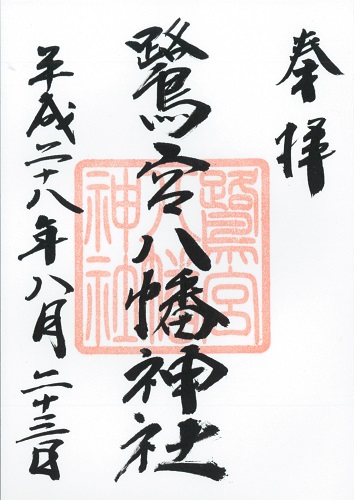 奉拝
鷺宮八幡神社
鷺宮
八幡
神社
平成二十八年八月二十三日